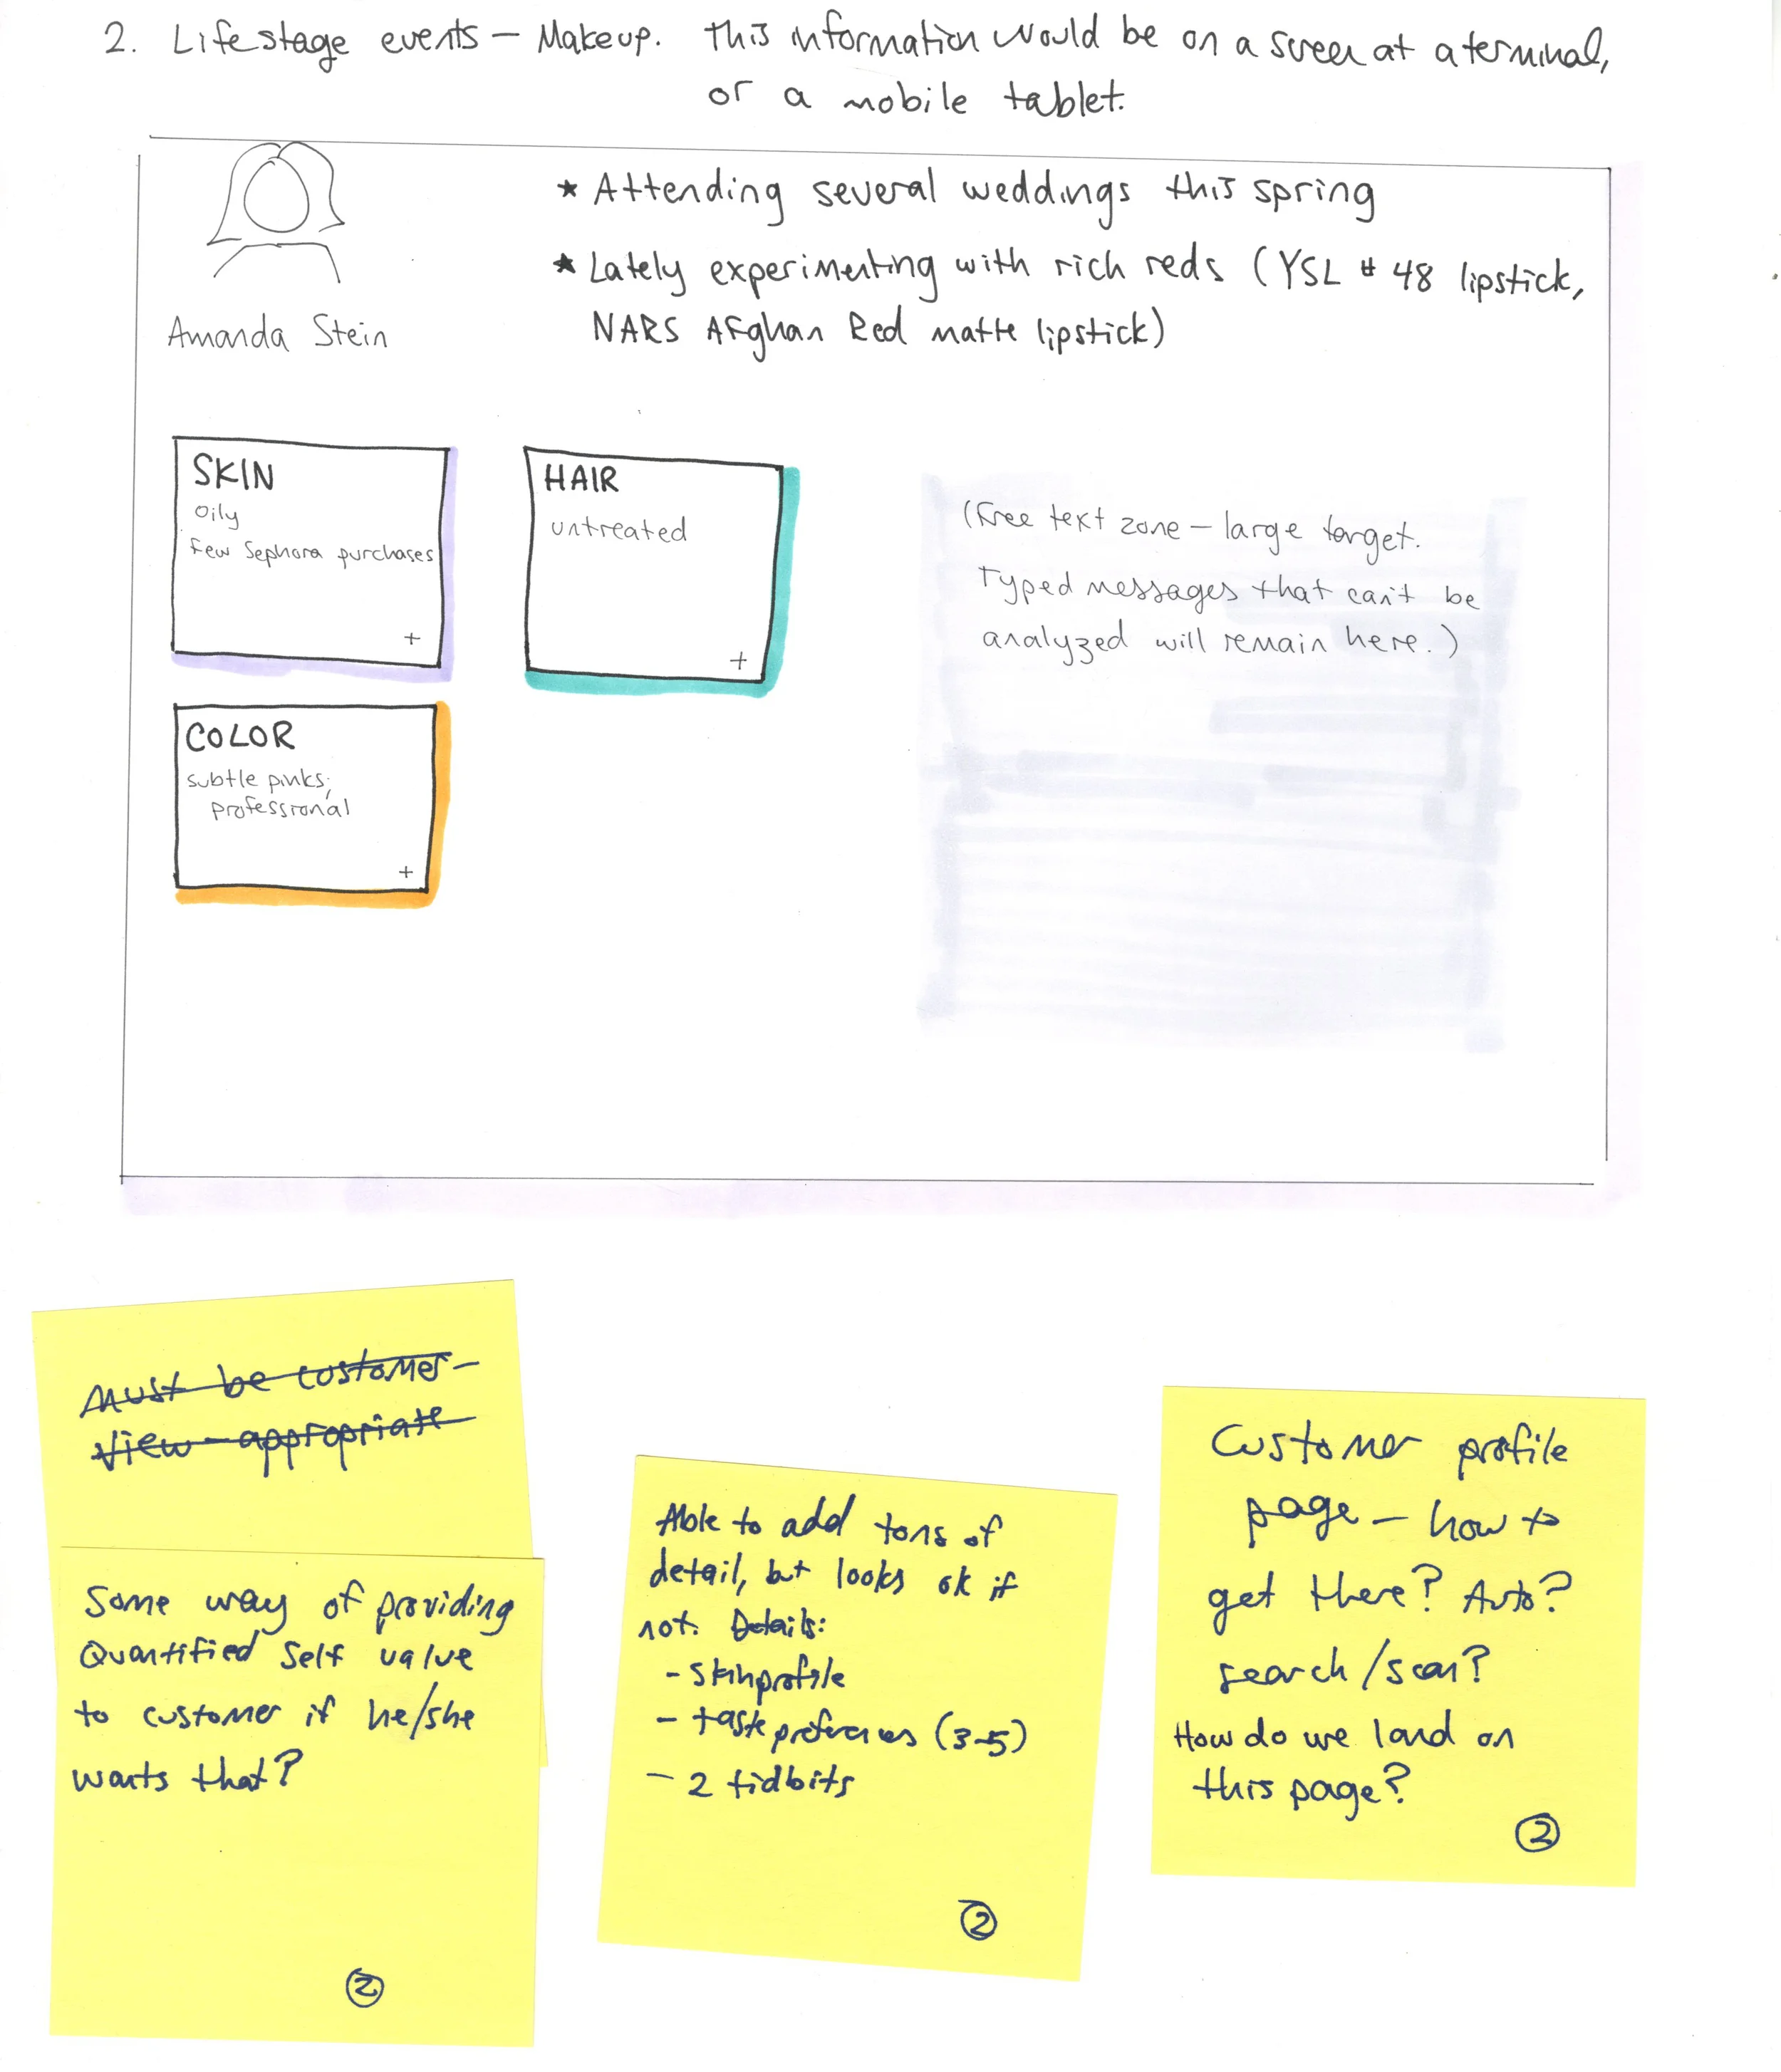 2. Lifestage events — Makeup. This information would be on a screen at a terminal,
or a mobile tablet.
* Attending several weddings this spring
* Lately experimenting with rich reds (YSL # 48 lipstick,
NARS Afghan Red matte lipstick)
Amanda Stein
SKIN
oily
few Sephora purchases
+
HAIR
untreated
+
COLOR
subtle pinks;
professional
+
(Free text zone — large target.
Typed messages that can't be
analyzed will remain here.)
Must be customer-
view-appropriate
Some way of providing
Quantified Self value
to customer if he/she
wants that?
2
Able to add tons of
detail, but looks ok if
not. Details:
- skin profile
- taste preferences (3-5)
- 2 tidbits
2
Customer profile
page — how to
get there? Auto?
search/scan?
How do we land on
this page?
2